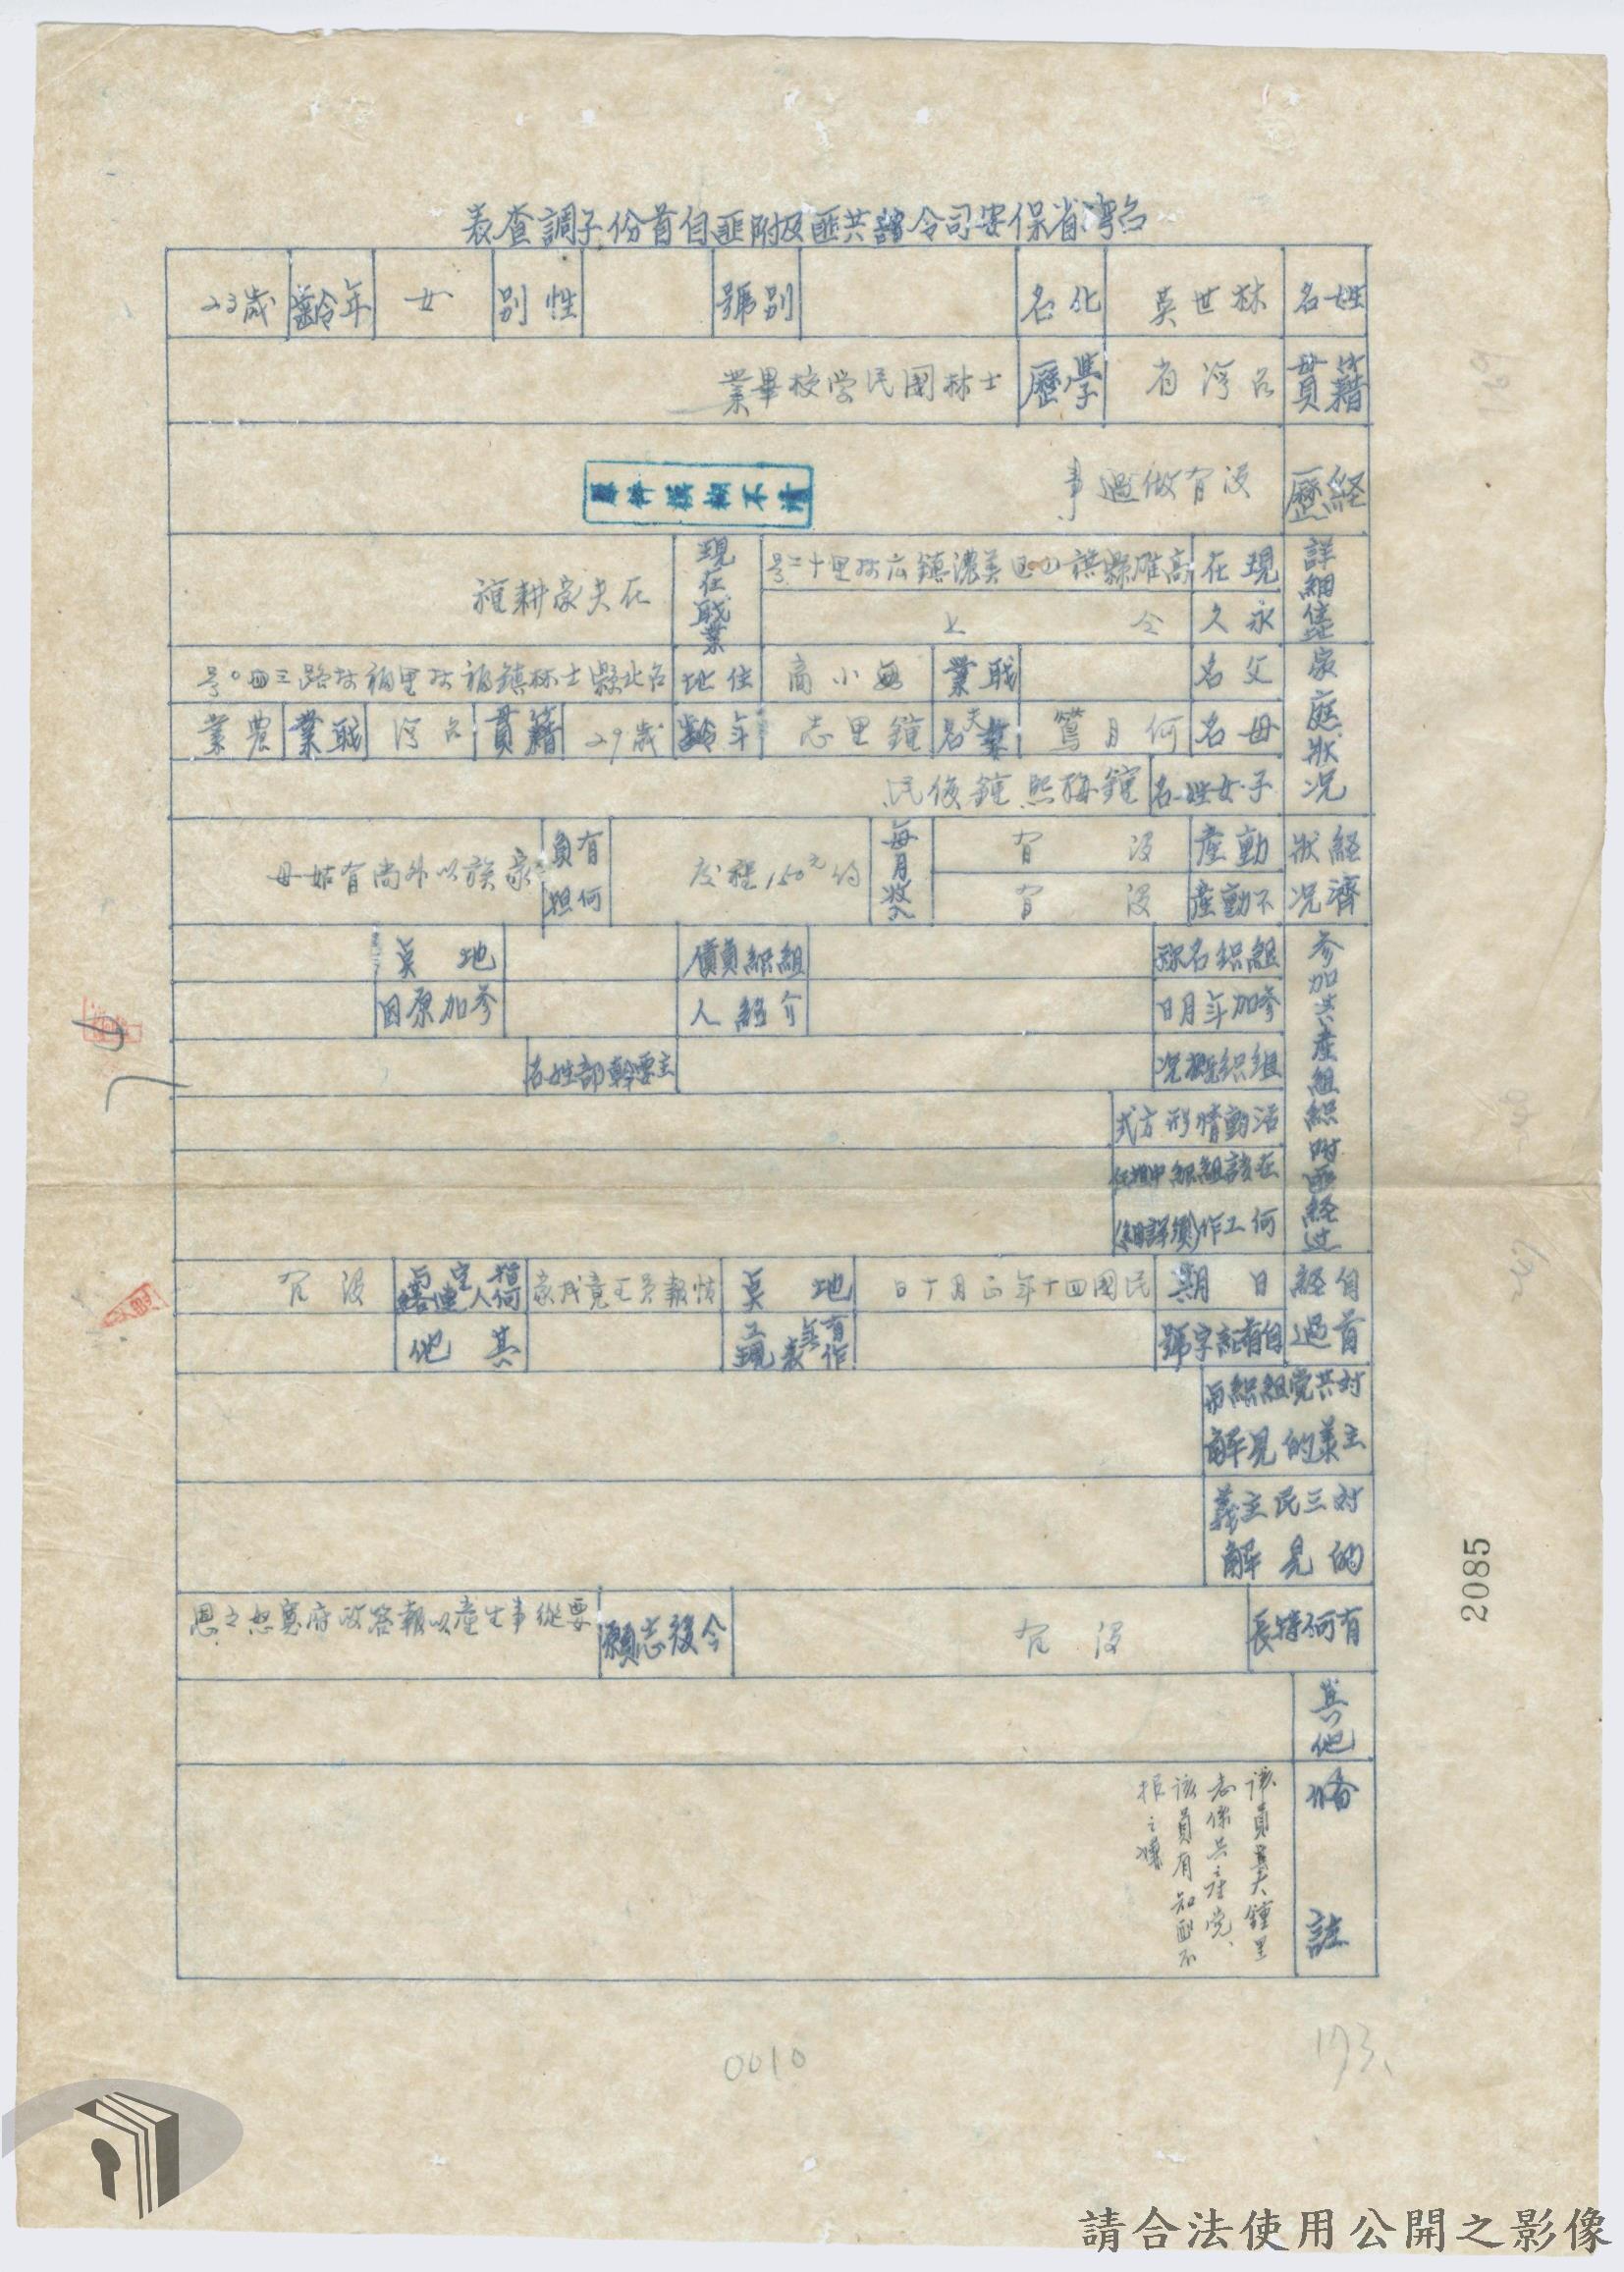 台灣省保安司令部共匪及附匪自首份子調查表
姓名 林世英 化名 別號 性別 女 年齡 23歲
籍貫 台湾省 學歷 士林國民学校畢業
経歷 沒有做過事
原件模糊不清
詳細住址 現在 美濃鎮広林里十二号
永久 仝上
現在職業 在夫家耕種
家庭狀況 父名 職業 小商 住地 台北縣士林鎮福林里福林路三四〇号
母名 何月鶯 夫名 鍾里志 年齡 29歲 籍貫 台湾 職業 農業
子女姓名 鍾俊民
経濟狀况 動産 沒有
不動産 沒有
每月收入 約150元程度
有何負担 家族以外尚有姑母
参加共産組織附匪経过
組織名称 組織負債 地点
参加年月日 介紹人 参加原因
組織概况 主要幹部姓名
活動情形方式
在該組織中担任
何工作(須詳細)
自首経過 日期 民國四十年正月十日 地点 沒有
自首証字號 有無工作表現 其他
对共党組織与
主義的見解
对三民主義
的見解
有何特長 沒有
今後志願 要從事生産以報答政府寬恕之恩
其他
備註
该員其夫鍾里
志係共産党、
该員有知匪不
报之嫌
2085
0010
173、
請合法使用公開之影像